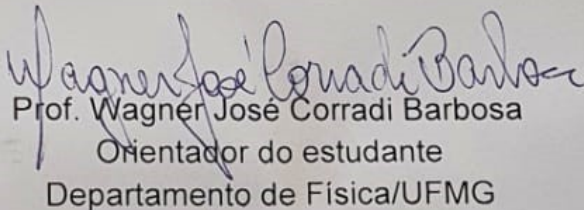 Wagner José Corradi Barbosa
Prof. Wagner José Corradi Barbosa
Orientador do estudante
Departamento de Física/UFMG